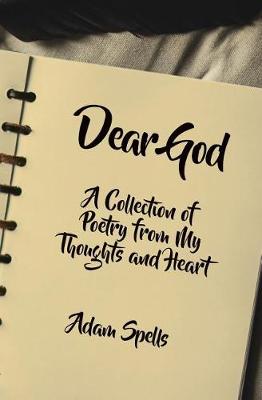 Dear God
A Collection of
Poetry from My
Thoughts and Heart
Adam Spells